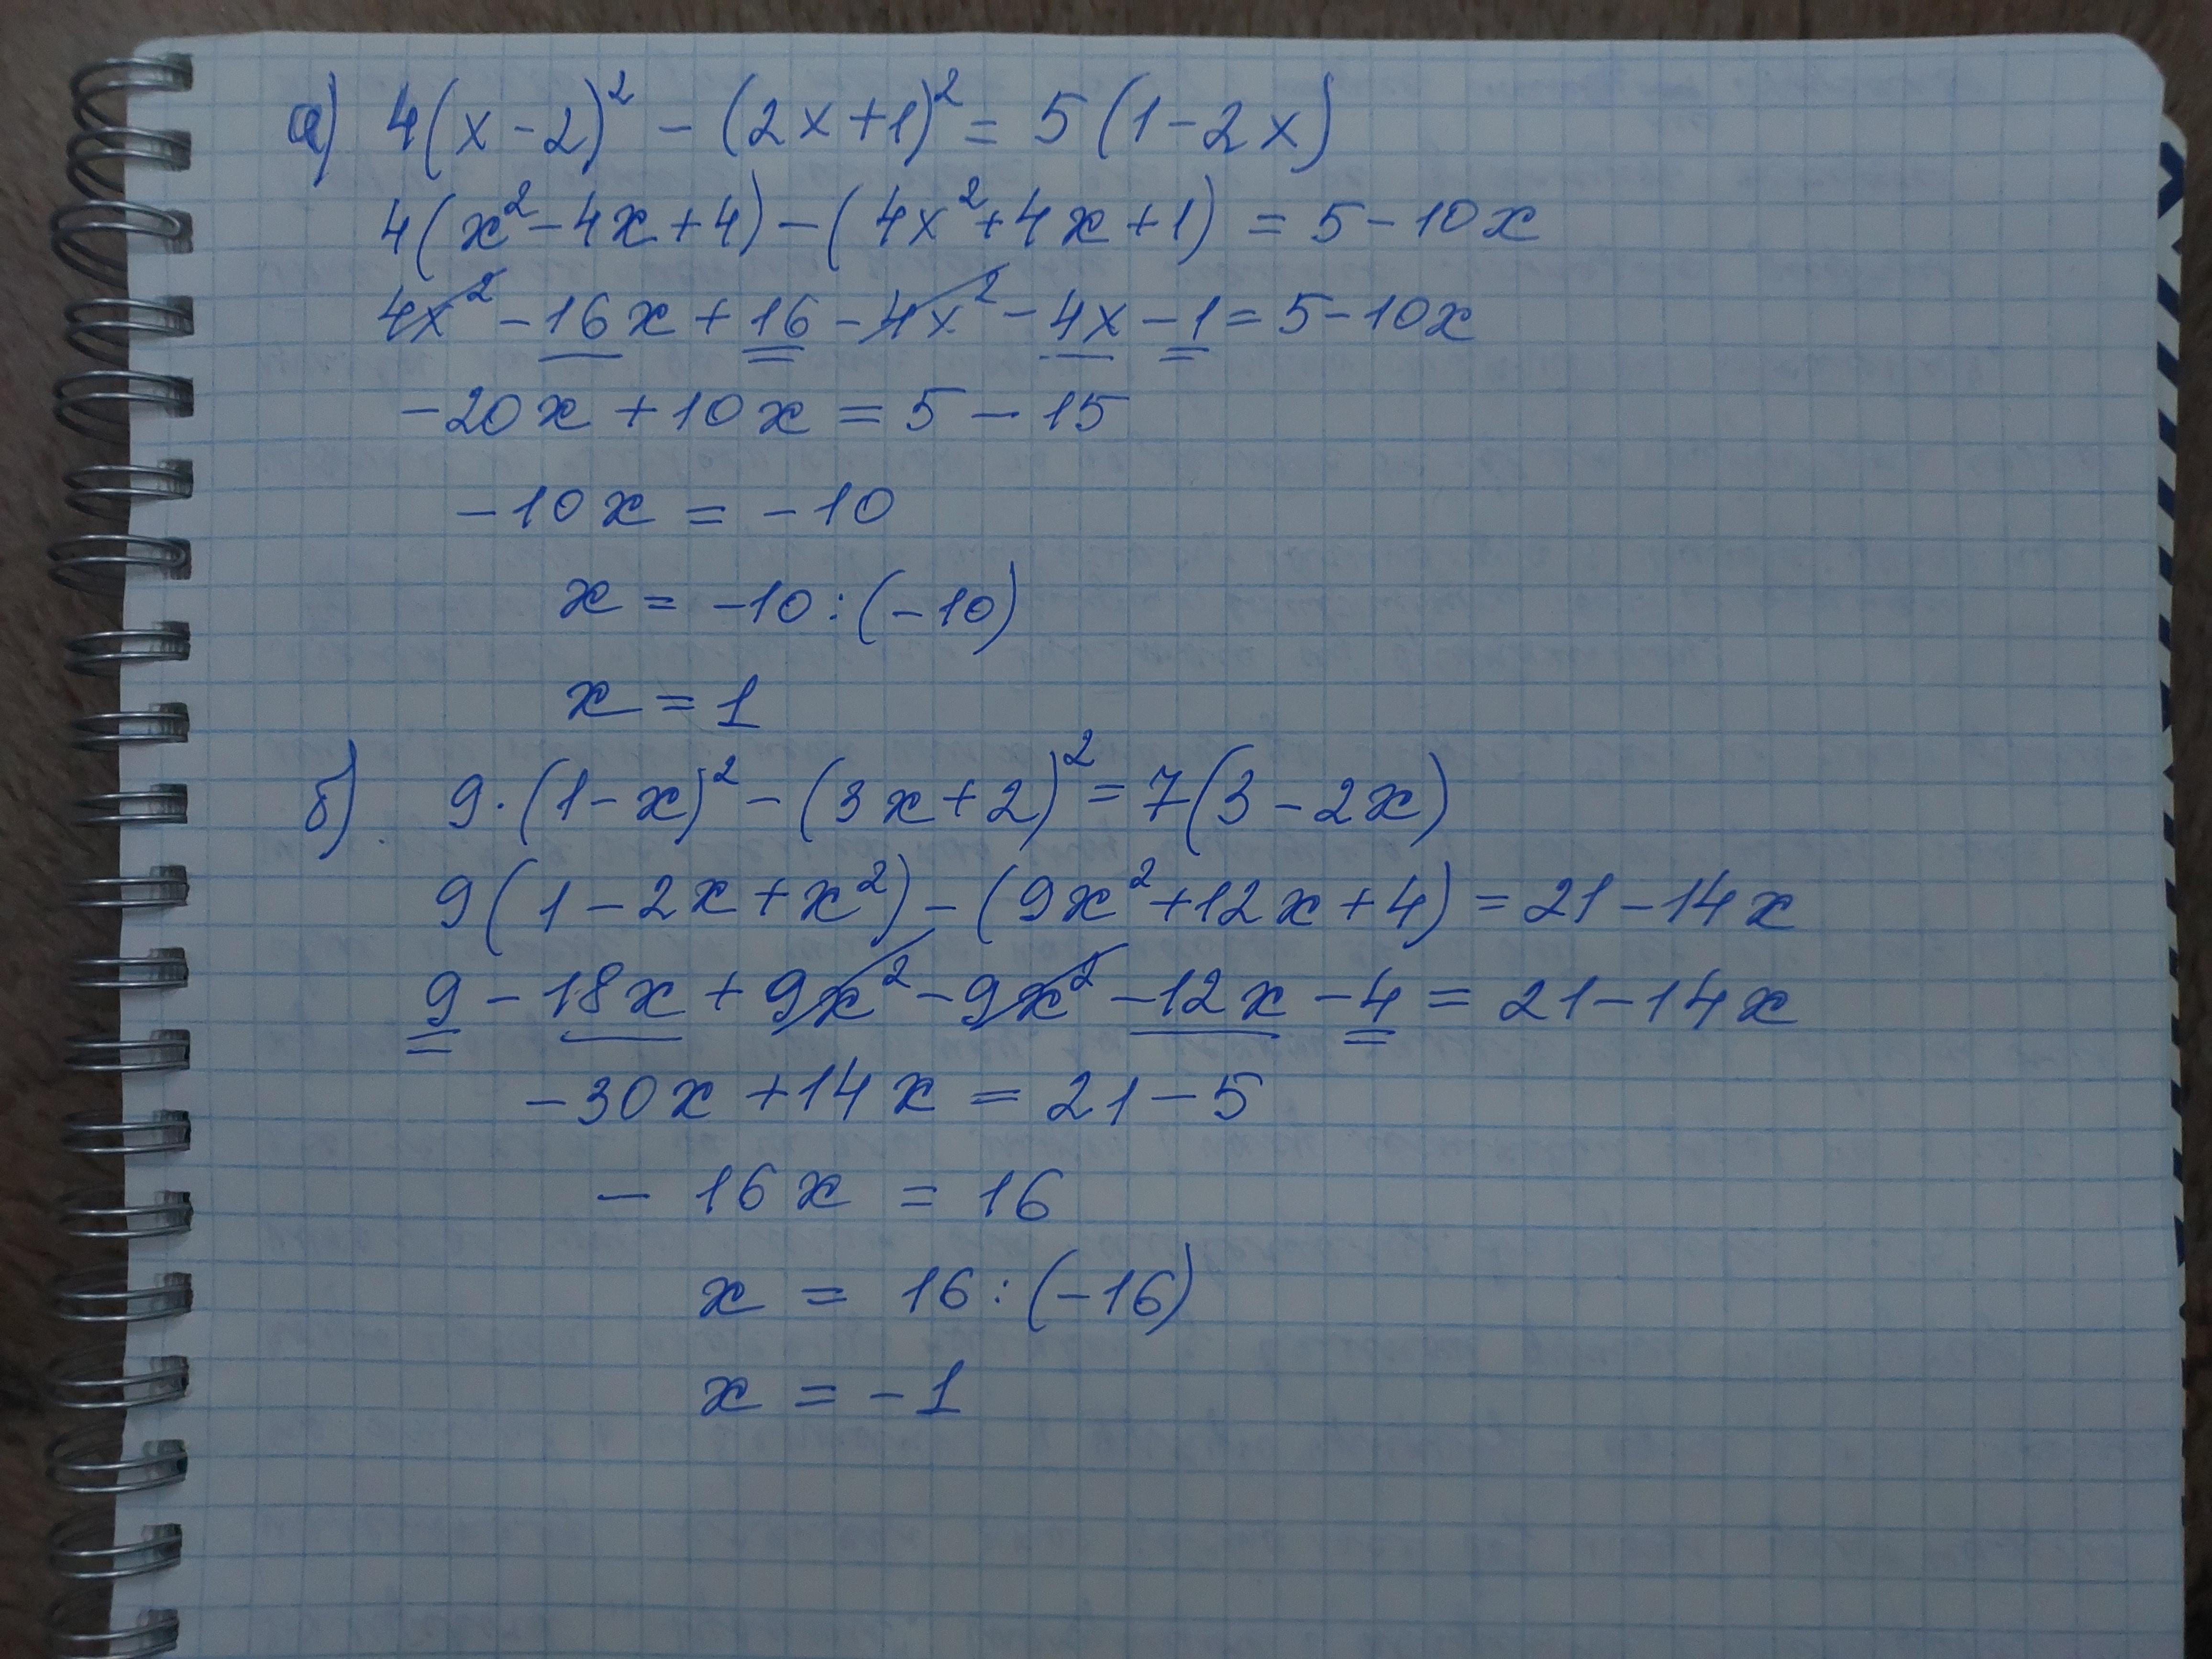 а) 4(x-2)² - (2x+1)² = 5(1-2x)
4(x²-4x+4)-(4x²+4x+1) = 5-10x
4x² - 16x + 16 - 4x² - 4x - 1 = 5-10x
-20x + 10x = 5 - 15
-10x = -10
x = -10:(-10)
x = 1
б) 9·(1-x)² - (3x+2)² = 7(3-2x)
9(1-2x+x²)-(9x²+12x+4) = 21-14x
9 - 18x + 9x² - 9x² - 12x - 4 = 21-14x
-30x + 14x = 21-5
- 16x = 16
x = 16:(-16)
x = -1